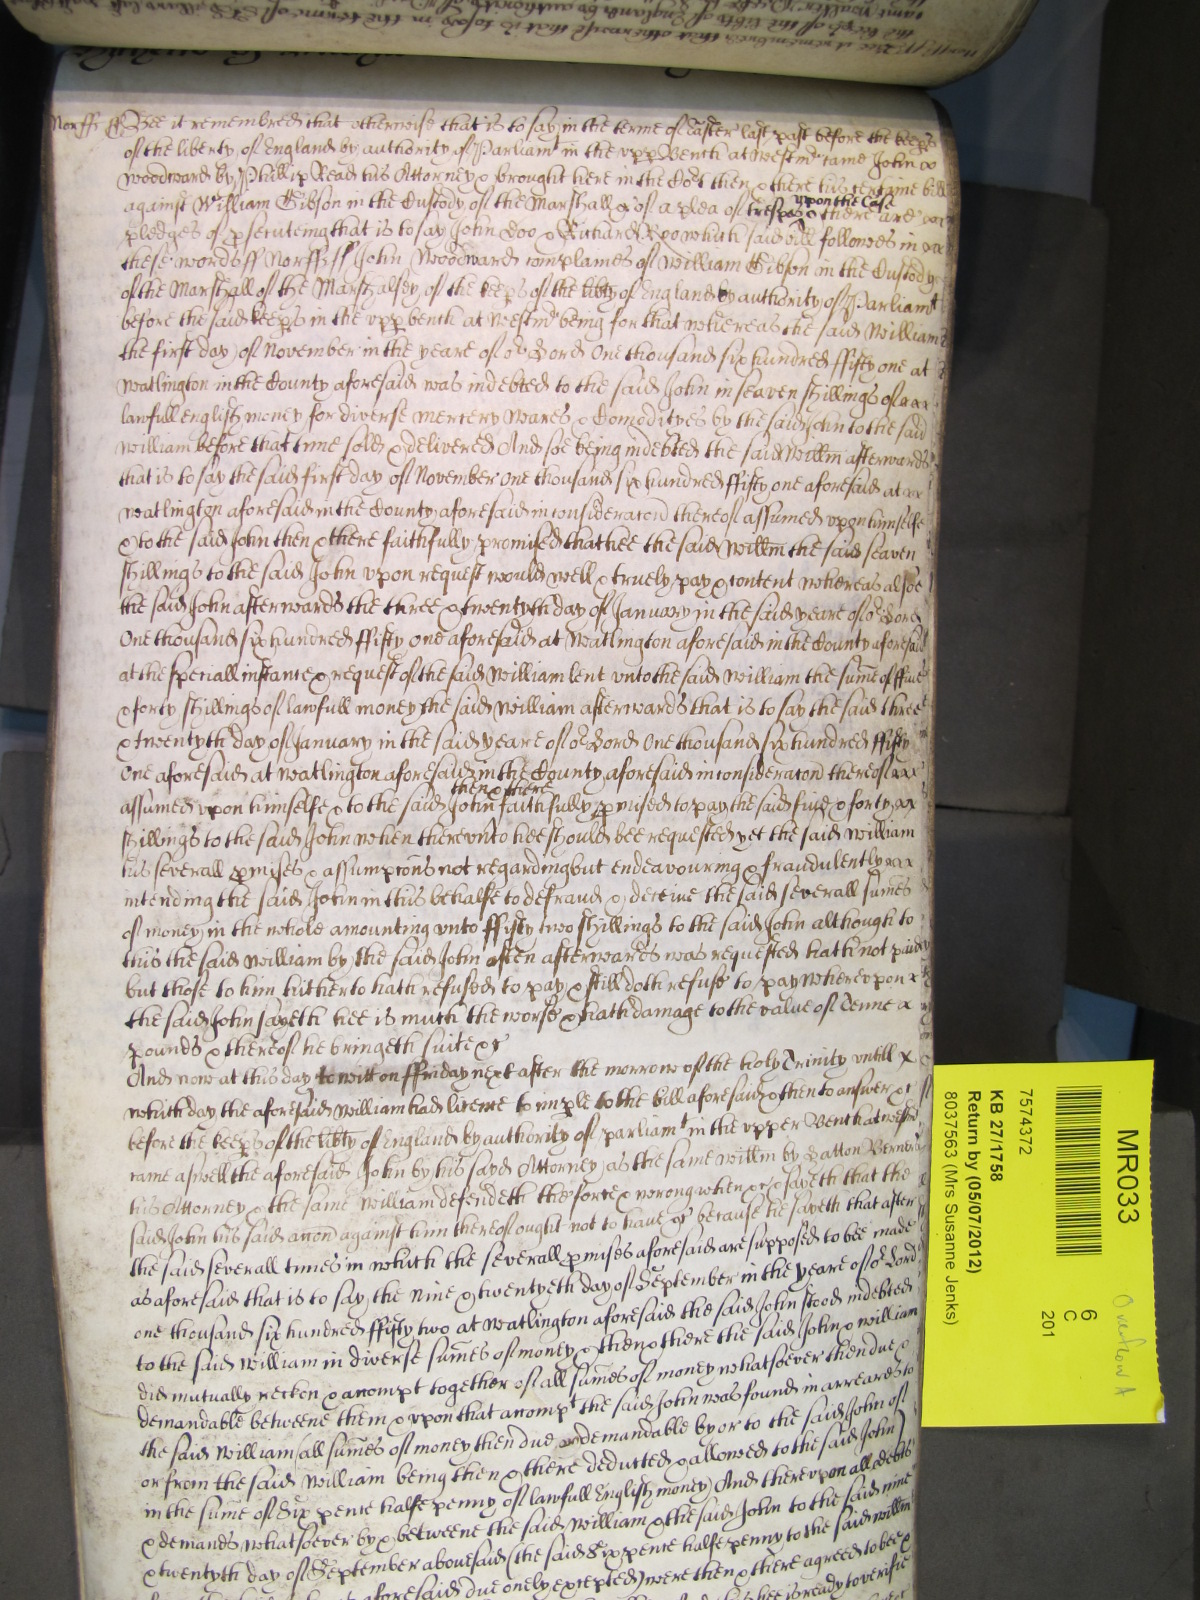 Norff ss Bee it remembred that otherwise that is to say in the terme of Easter last past before the keeps
of the liberty of England by authority of Parliamt in the vpp Bench at Westmr came John
Woodward by Phillip Read his Attorney & brought here in the Cort then & there his certaine bill
against William Gibson in the Custody of the Marshall &c of a plea of trespas upon the Case & there are
pledges of psecuteing that is to say John Doo & Richard Roo which said bill followes in
these words ss Norff ss John Woodward complaines of William Gibson in the Custody
of the Marshall of the Marshalsey of the keeps of the libty of England by authority of Parliamt
before the said keeps in the vpp bench at Westmr being for that whereas the said William
the first day of November in the yeare of or Lord One thousand six hundred fifty one at
Watlington in the County aforesaid was indebted to the said John in seaven shillings of
lawfull english money for diverse mercery wares & Comodityes by the said John to the said
William before that time sold & delivered And soe being indebted the said Willm afterwards
that is to say the said first day of November One thousand six hundred fifty one aforesaid at
Watlington aforesaid in the County aforesaid in consideracon thereof assumed vpon himselfe
& to the said John then & there faithfully promised that hee the said Willm the said seaven
shillings to the said John vpon request would well & truely pay & content whereas alsoe
the said John afterwards the three & twentyth day of January in the said yeare of or Lord
One thousand six hundred fifty one aforesaid at Watlington aforesaid in the County aforesaid
at the speciall instance & request of the said William lent vnto the said William the sume of ffive
& forty shillings of lawfull money the said William afterwards that is to say the said three
& twentyth day of January in the said yeare of or Lord One thousand six hundred fifty
One aforesaid at Watlington aforesaid in the County aforesaid in consideracon thereof
assumed vpon himselfe & to the said John then & there faithfully pmised to pay the said five & forty
shillings to the said John when therevnto hee should bee requested yet the said William
his severall pmises & assumpcons not regarding but endeavouring & fraudulently
intending the said John in this behalfe to defraud & deceive the said severall sumes
of money in the whole amounting vnto fifty two shillings to the said John although to
this the said William by the said John often afterwards was requested hath not paid
but those to him hitherto hath refused to pay & still doth refuse to pay Wherevpon
the said John sayeth hee is much the worse & hath damage to the value of Tenne
pounds & thereof he bringeth suite &c
And now at this day to witt on ffriday next after the morrow of the holy Trinity vntill
which day the aforesaid William had licence to imple to the bill aforesaid & then to answer &c
before the keeps of the libty of England by authority of parliamt in the vpper Bench at westmr
came aswell the aforesaid John by his sayd Attorney as the same Willm by
his Attorney & the same William defendeth the force & wrong when &c & sayeth that the
said John his said accon against him thereof ought not to haue &c because he sayeth that after
the said severall times in which the severall pmises aforesaid are supposed to bee made
as aforesaid that is to say the nine & twentyeth day of September in the yeare of or Lord
one thousand six hundred fifty two at Watlington aforesaid the said John stood indebted
to the said William in diverse sumes of money & then & there the said John & William
did mutually reckon & accompt together of all sumes of money whatsoever then due &
demandable betweene them & vpon that accompt the said John was found in arreares to
the said William (all sumes of money then due or demandable by or to the said John of
or from the said William being then & there deducted & allowed to the said John)
in the sume of Six pence halfe penny of lawfull English money) And therevpon all debts
& demands whatsoever by & betweene the said William & the said John to the said nine
& twentyth day of September abouesaid (the said Six pence halfe penny to the said Willm
aforesaid due onely excepted) were then & there agreed to bee
hee is ready to verifie
MR033
6
C
201
7574372
KB 27/1758
Return by (05/07/2012)
8037563 (Mrs Susanne Jenks)
Overflow A